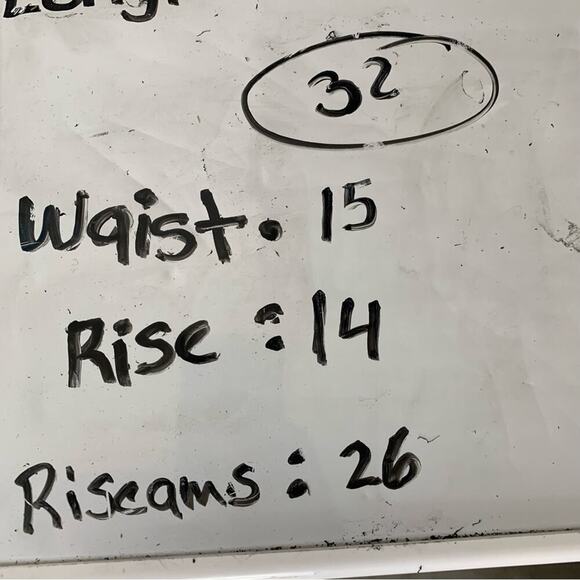 32
Waist. 15
Rise : 14
Riseams : 26